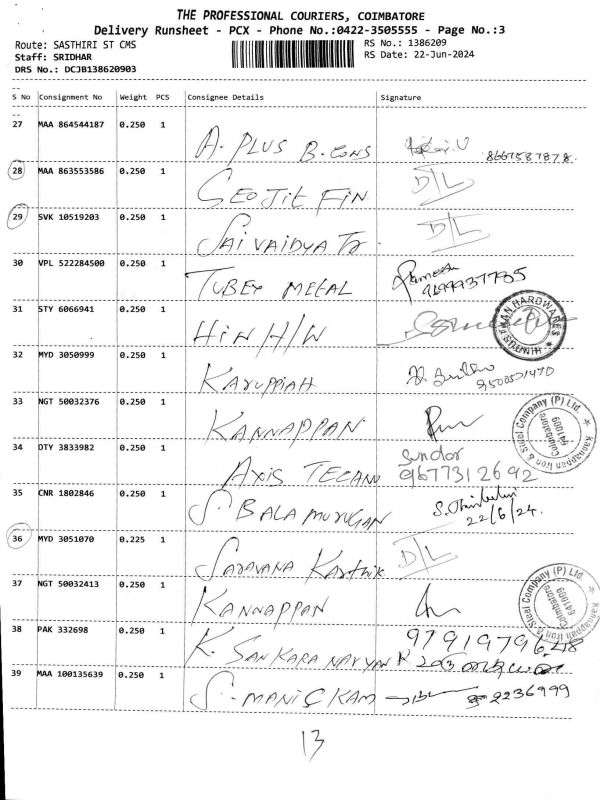 THE PROFESSIONAL COURIERS, COIMBATORE
Delivery Runsheet - PCX - Phone No.:0422-3505555 - Page No.:3
Route: SASTHIRI ST CMS
RS No.: 1386209
Staff: SRIDHAR
RS Date: 22-Jun-2024
DRS No.: DCJB138620903
S No Consignment No Weight PCS Consignee Details Signature
27 MAA 864544187 0.250 1 A. PLUS B. CONS 8667587878
28 MAA 863553586 0.250 1 GEOJIT FIN D/L
29 SVK 10519203 0.250 1 SAI VAIDYA Tr. D/L
30 VPL 522284500 0.250 1 TUBEX METAL Ramesh
31 STY 6066941 0.250 1 HIN H/W
HINDUSTHAN HARDWARES
32 MYD 3050999 0.250 1 KARUPPIAH
33 NGT 50032376 0.250 1 KANNAPPAN
Kannappan Iron & Steel Company (P) Ltd.
Coimbatore
641009
34 OTY 3833982 0.250 1 AXIS TECHNO Sundar
9677312692
35 CNR 1802846 0.250 1 S. BALAMURUGAN
22/6/24.
36 MYD 3051070 0.225 1 SARAVANA Karthik D/L
37 NGT 50032413 0.250 1 KANNAPPAN
Kannappan Iron & Steel Company (P) Ltd.
Coimbatore
641009
38 PAK 332698 0.250 1 K. SANKARA NAYYAN
39 MAA 100135639 0.250 1 S. MANICKAM 2236999
13